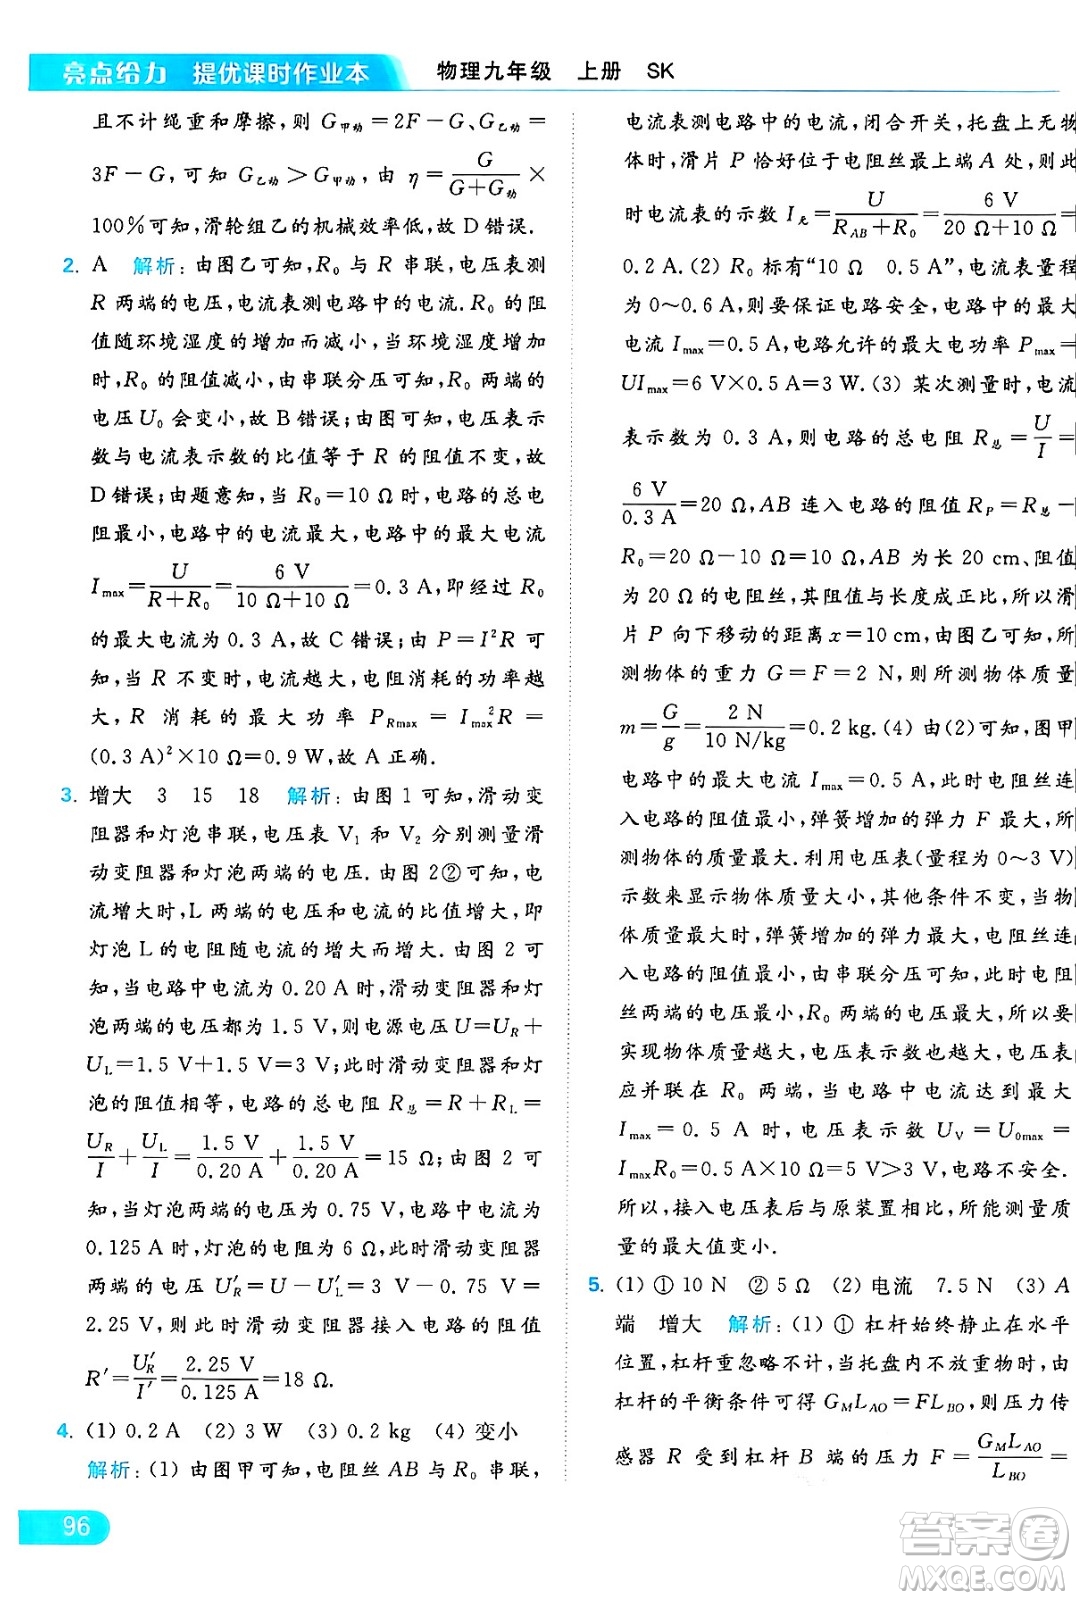 亮点给力 提优课时作业本 物理九年级 上册 SK
且不计绳重和摩擦,则 G甲动=2F-G、G乙动=
3F-G,可知 G乙动>G甲动,由 η=G/(G+G动)×
100%可知,滑轮组乙的机械效率低,故 D 错误.
2. A 解析:由图乙可知,R₀ 与 R 串联,电压表测
R 两端的电压,电流表测电路中的电流.R₀ 的阻
值随环境湿度的增加而减小,当环境湿度增加
时,R₀ 的阻值减小,由串联分压可知,R₀ 两端的
电压 U₀ 会变小,故 B 错误;由图可知,电压表示
数与电流表示数的比值等于 R 的阻值不变,故
D 错误;由题意知,当 R₀=10 Ω 时,电路的总电
阻最小,电路中的电流最大,电路中的最大电流
Imax=U/(R+R₀)=6 V/(10 Ω+10 Ω)=0.3 A,即经过 R₀
的最大电流为 0.3 A,故 C 错误;由 P=I²R 可
知,当 R 不变时,电流越大,电阻消耗的功率越
大,R 消耗的最大功率 PRmax=Imax²R=
(0.3 A)²×10 Ω=0.9 W,故 A 正确.
3. 增大 3 15 18 解析:由图 1 可知,滑动变
阻器和灯泡串联,电压表 V₁ 和 V₂ 分别测量滑
动变阻器和灯泡两端的电压.由图 2②可知,电
流增大时,L 两端的电压和电流的比值增大,即
灯泡 L 的电阻随电流的增大而增大.由图 2 可
知,当电路中电流为 0.20 A 时,滑动变阻器和灯
泡两端的电压都为 1.5 V,则电源电压 U=UR+
UL=1.5 V+1.5 V=3 V;此时滑动变阻器和灯
泡的阻值相等,电路的总电阻 R总=R+RL=
UR/I+UL/I=1.5 V/0.20 A+1.5 V/0.20 A=15 Ω;由图 2 可
知,当灯泡两端的电压为 0.75 V,电路中电流为
0.125 A 时,灯泡的电阻为 6 Ω,此时滑动变阻器
两端的电压 U′R=U-U′L=3 V-0.75 V=
2.25 V,则此时滑动变阻器接入电路的阻值
R′=U′R/I′=2.25 V/0.125 A=18 Ω.
4. (1) 0.2 A (2) 3 W (3) 0.2 kg (4) 变小
解析:(1) 由图甲可知,电阻丝 AB 与 R₀ 串联,
电流表测电路中的电流,闭合开关,托盘上无物
体时,滑片 P 恰好位于电阻丝最上端 A 处,则此
时电流表的示数 I无=U/(RAB+R₀)=6 V/(20 Ω+10 Ω)=
0.2 A.(2) R₀ 标有“10 Ω 0.5 A”,电流表量程
为 0~0.6 A,则要保证电路安全,电路中的最大
电流 Imax=0.5 A,电路允许的最大电功率 Pmax=
UImax=6 V×0.5 A=3 W.(3) 某次测量时,电流
表示数为 0.3 A,则电路的总电阻 R总=U/I=
6 V/0.3 A=20 Ω,AB 连入电路的阻值 RP=R总-
R₀=20 Ω-10 Ω=10 Ω,AB 为长 20 cm、阻值
为 20 Ω 的电阻丝,其阻值与长度成正比,所以滑
片 P 向下移动的距离 x=10 cm,由图乙可知,所
测物体的重力 G=F=2 N,则所测物体质量
m=G/g=2 N/(10 N/kg)=0.2 kg.(4) 由(2)可知,图甲
电路中的最大电流 Imax=0.5 A,此时电阻丝连
入电路的阻值最小,弹簧增加的弹力 F 最大,所
测物体的质量最大.利用电压表(量程为 0~3 V)
示数来显示物体质量大小,其他条件不变,当物
体质量最大时,弹簧增加的弹力最大,电阻丝连
入电路的阻值最小,由串联分压可知,此时电阻
丝两端的电压最小,R₀ 两端的电压最大,所以要
实现物体质量越大,电压表示数也越大,电压表
应并联在 R₀ 两端,当电路中电流达到最大
Imax=0.5 A 时,电压表示数 UV=U₀max=
ImaxR₀=0.5 A×10 Ω=5 V>3 V,电路不安全.
所以,接入电压表后与原装置相比,所能测量质
量的最大值变小.
5. (1) ① 10 N ② 5 Ω (2) 电流 7.5 N (3) A
端 增大 解析:(1) ① 杠杆始终静止在水平
位置,杠杆重忽略不计,当托盘内不放重物时,由
杠杆的平衡条件可得 GMLAO=FLBO,则压力传
感器 R 受到杠杆 B 端的压力 F=GMLAO/LBO=
96
答案圈
MXQE.COM